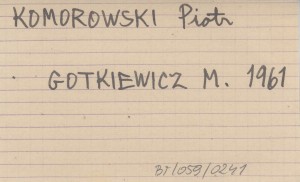 KOMOROWSKI Piotr
GOTKIEWICZ M. 1961
BT/059/0241